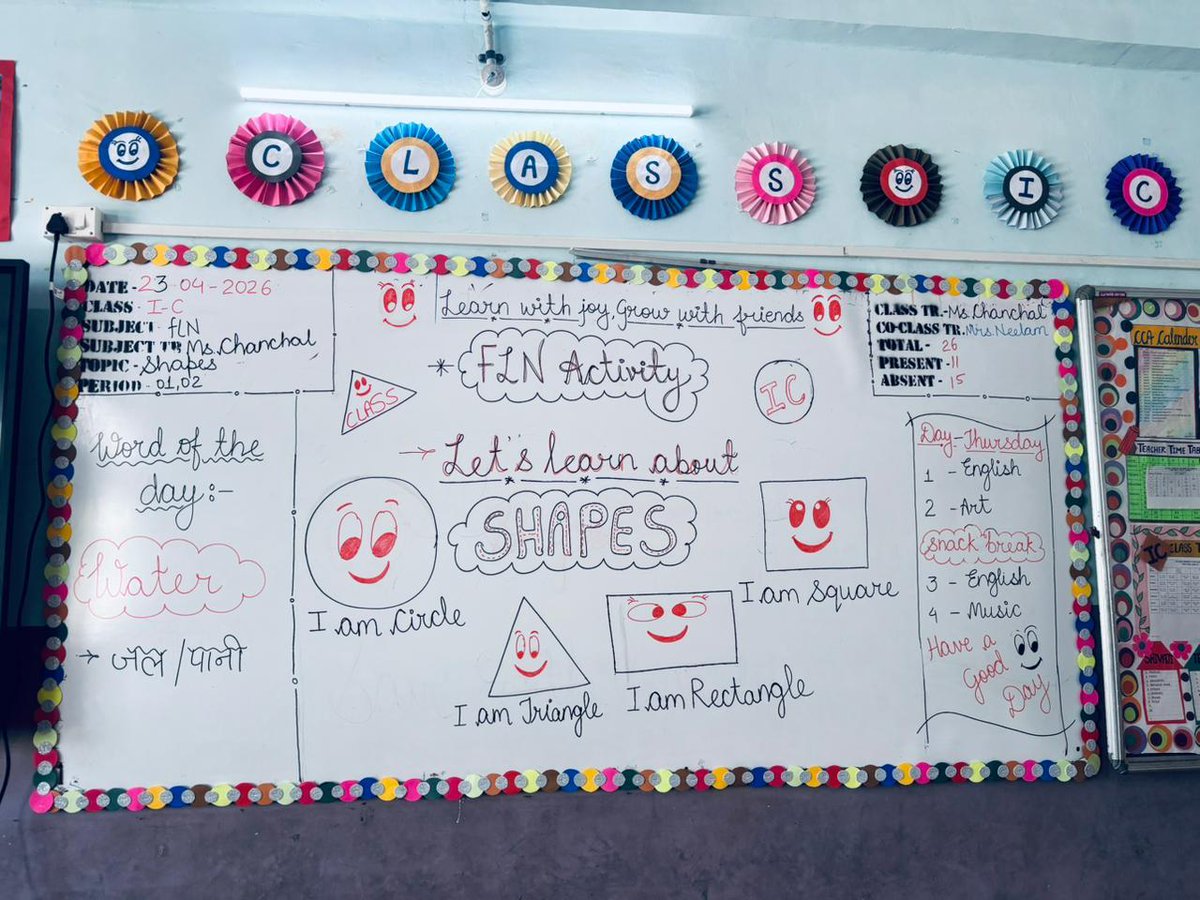 CLASS IC
DATE - 23-04-2026
CLASS - I-C
SUBJECT - FLN
SUBJECT TR. Ms. Chanchal
TOPIC - Shapes
PERIOD - 01,02
Word of the
day:-
Water
→ जल/पानी
Learn with joy, Grow with friends
* FLN Activity
CLASS
IC
→ Let's learn about
SHAPES
I am Circle
I am Triangle
I am Rectangle
I am Square
CLASS TR. - Ms. Chanchal
CO-CLASS TR. Mrs. Neelam
TOTAL - 26
PRESENT - 11
ABSENT - 15
Day - Thursday
1 - English
2 - Art
Snack break
3 - English
4 - Music
Have a
Good
Day
CCA Calendar
TEACHER TIME TAB
IC CLASS T